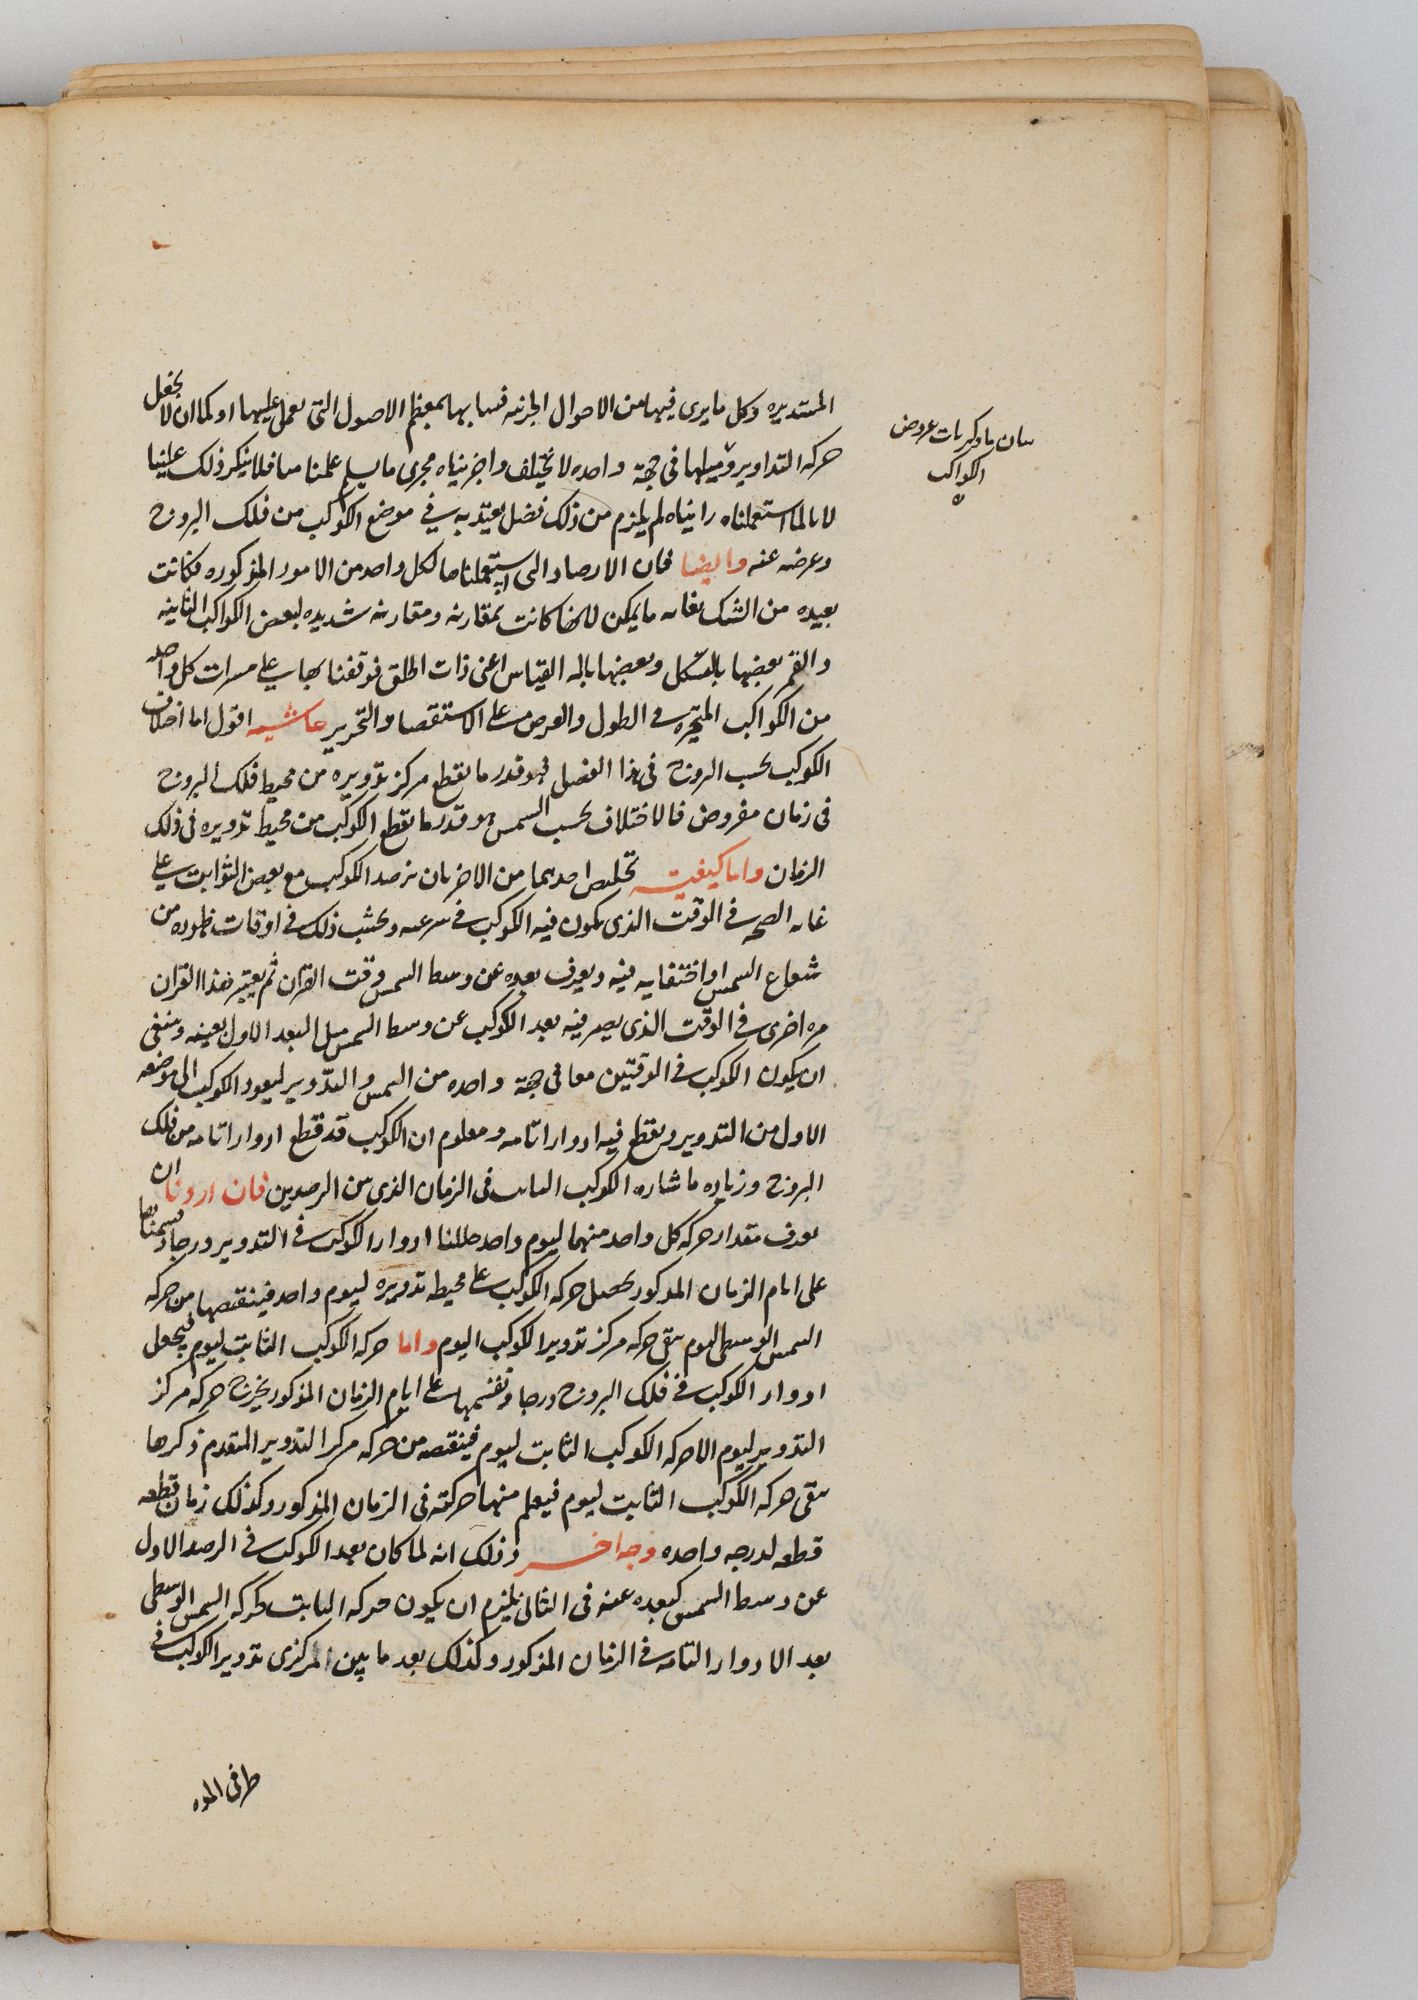 المستديره وكل ما يرى فيها من الاحوال الجزئيه فيها بها بمعظم الاصول التى يعمل عليها او كما ان لا نجعل
حركه التداوير وميلها فى جهة واحده لا يختلف واجريناه مجرى ما يسلم علمنا فلا ينكر ذلك علينا
لانا لما استعملناه راينا انه لم يلزم من ذلك فضل يعتد به فى موضع الكوكب من فلك البروج
وعرضه عنه وايضا فان الارصاد التى استعملناها لكل واحد من الامور المذكوره فكانت
بعيده من الشك بغايه ما يمكن لانها كانت بمقارنه ومقارنه شديده لبعض الكواكب الثابته
والقمر بعضها بالشكل وبعضها باله القياس اعنى ذات الحلق فوقفنا بها على مسيرات كل واحد
من الكواكب المتحيره فى الطول والعرض على الاستقصاء والتحرير حاشيه اقول اما اختلاف
الكوكب بحسب البروج فى هذا الفصل فهو قدر ما يقطع مركز تدويره من محيط فلك البروج
فى زمان مفروض فالاختلاف بحسب الشمس هو قدر ما يقطع الكوكب من محيط تدويره فى ذلك
الزمان واما كيفيت تخليص احديهما من الاخر بان نرصد الكوكب مع بعض الثوابت على
غايه الصحه فى الوقت الذى يكون فيه الكوكب فى سرعه ونحسب ذلك فى اوقات ظهوره من
شعاع الشمس او اختفايه فيه ويعرف بعده عن وسط الشمس وقت القران ثم يعتبر هذا القران
مره اخرى فى الوقت الذى يصير فيه بعد الكوكب عن وسط الشمس مثل البعد الاول بعينه وينبغى
ان يكون الكوكب فى الوقتين معا فى جهة واحده من الشمس والتدوير ليعود الكوكب الى موضعه
الاول من التدوير ويقطع فيه ادوارا تامه ومعلوم ان الكوكب قد قطع ادوارا تامه من فلك
البروج وزياده ما شاره الكوكب الثابت فى الزمان الذى بين الرصدين فان اردنا ان
نعرف مقدار حركه كل واحد منهما ليوم واحد حللنا ادوار الكوكب فى التدوير درجا وقسمناها
على ايام الزمان المذكور يحصل حركه الكوكب على محيط تدويره ليوم واحد فينقصها من حركه
الشمس الوسطى ليوم يبقى حركه مركز تدوير الكوكب اليوم واما حركه الكوكب الثابت ليوم فيجعل
ادوار الكوكب فى فلك البروج درجا ونقسمها على ايام الزمان المذكور يخرج حركه مركز
التدوير ليوم الا حركه الكوكب الثابت ليوم فينقصه من حركه مركز التدوير المتقدم ذكرها
يبقى حركه الكوكب الثابت ليوم فيعلم منها حركته فى الزمان المذكور وكذلك زمان قطعه
قطعه لدرجه واحده وجه اخر وذلك انه لما كان بعد الكوكب فى الرصد الاول
عن وسط الشمس كبعده عنه فى الثانى يلزم ان يكون حركه الثابت كحركه الشمس الوسطى
بعد الادوار التامه فى الزمان المذكور وكذلك بعد ما بين المركزى تدوير الكوكب فى
بيان عروض
الكواكب
طرفى المده